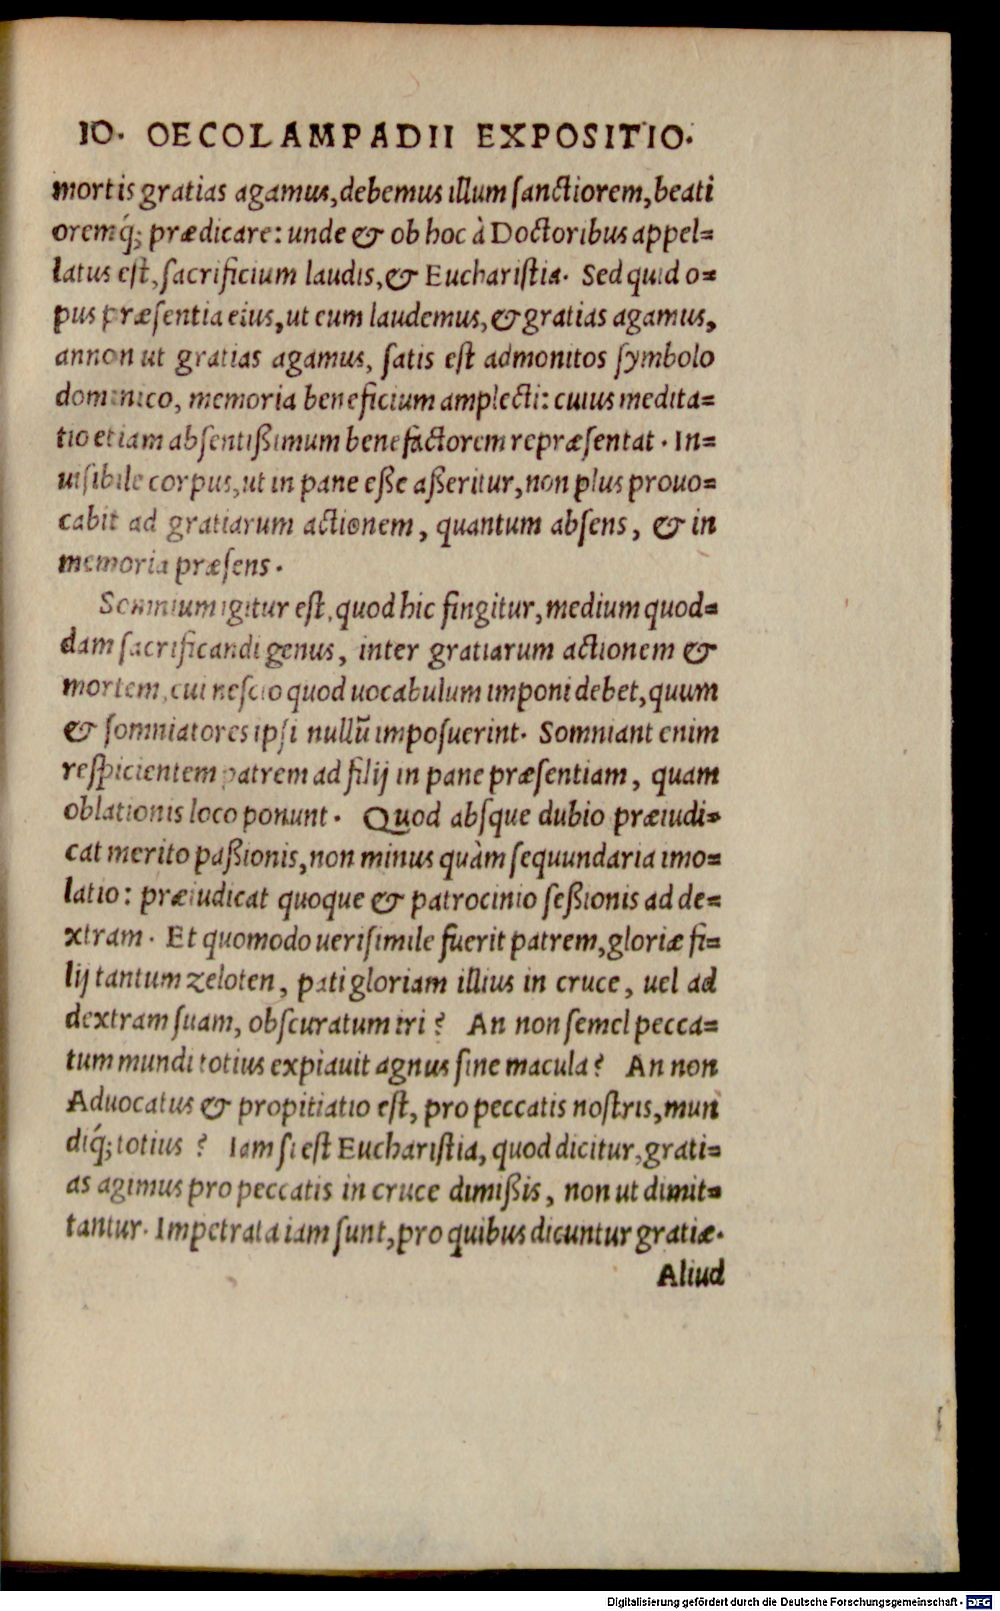 IO. OECOLAMPADII EXPOSITIO.
mortis gratias agamus, debemus illum ſanctiorem, beati
oremq́; prædicare: unde & ob hoc à Doctoribus appel=
latus eſt, ſacrificium laudis, & Euchariſtia. Sed quid o=
pus præſentia eius, ut eum laudemus, & gratias agamus,
annon ut gratias agamus, ſatis eſt admonitos ſymbolo
dominico, memoria beneficium amplecti: cuius medita=
tio etiam abſentißimum benefactorem repræſentat. In=
uiſibile corpus, ut in pane eße aßeritur, non plus prouo=
cabit ad gratiarum actionem, quantum abſens, & in
memoria præſens.
Somnium igitur eſt, quod hic fingitur, medium quod=
dam ſacrificandi genus, inter gratiarum actionem &
mortem, cui neſcio quod uocabulum imponi debet, quum
& ſomniatores ipſi nullũ impoſuerint. Somniant enim
reſpicientem patrem ad filij in pane præſentiam, quam
oblationis loco ponunt. Quod abſque dubio præiudi=
cat merito paßionis, non minus quàm ſequundaria imo=
latio: præiudicat quoque & patrocinio ſeßionis ad de=
xtram. Et quomodo ueriſimile fuerit patrem, gloriæ fi=
lij tantum zeloten, pati gloriam illius in cruce, uel ad
dextram ſuam, obſcuratum iri? An non ſemel pecca=
tum mundi totius expiauit agnus ſine macula? An non
Aduocatus & propitiatio eſt, pro peccatis noſtris, mun
diq́; totius? Iam ſi eſt Euchariſtia, quod dicitur, grati=
as agimus pro peccatis in cruce dimißis, non ut dimit=
tantur. Impetrata iam ſunt, pro quibus dicuntur gratiæ.
Aliud
Digitalisierung gefördert durch die Deutsche Forschungsgemeinschaft - DFG